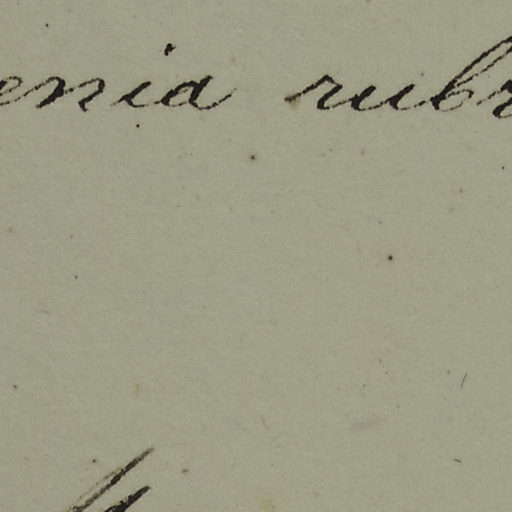 enia rubr